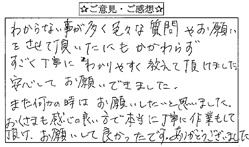 ☆ご意見・ご感想☆
わからない事が多く色々な質問やお願い
をさせて頂いたにもかかわらず
すごく丁寧にわかりやすく教えて頂けました
安心してお願いできました。
また何かの時はお願いしたいと思いました。
おくさまも感じの良い方で本当に丁寧に作業もして
頂け、お願いして良かったです。ありがとうございました